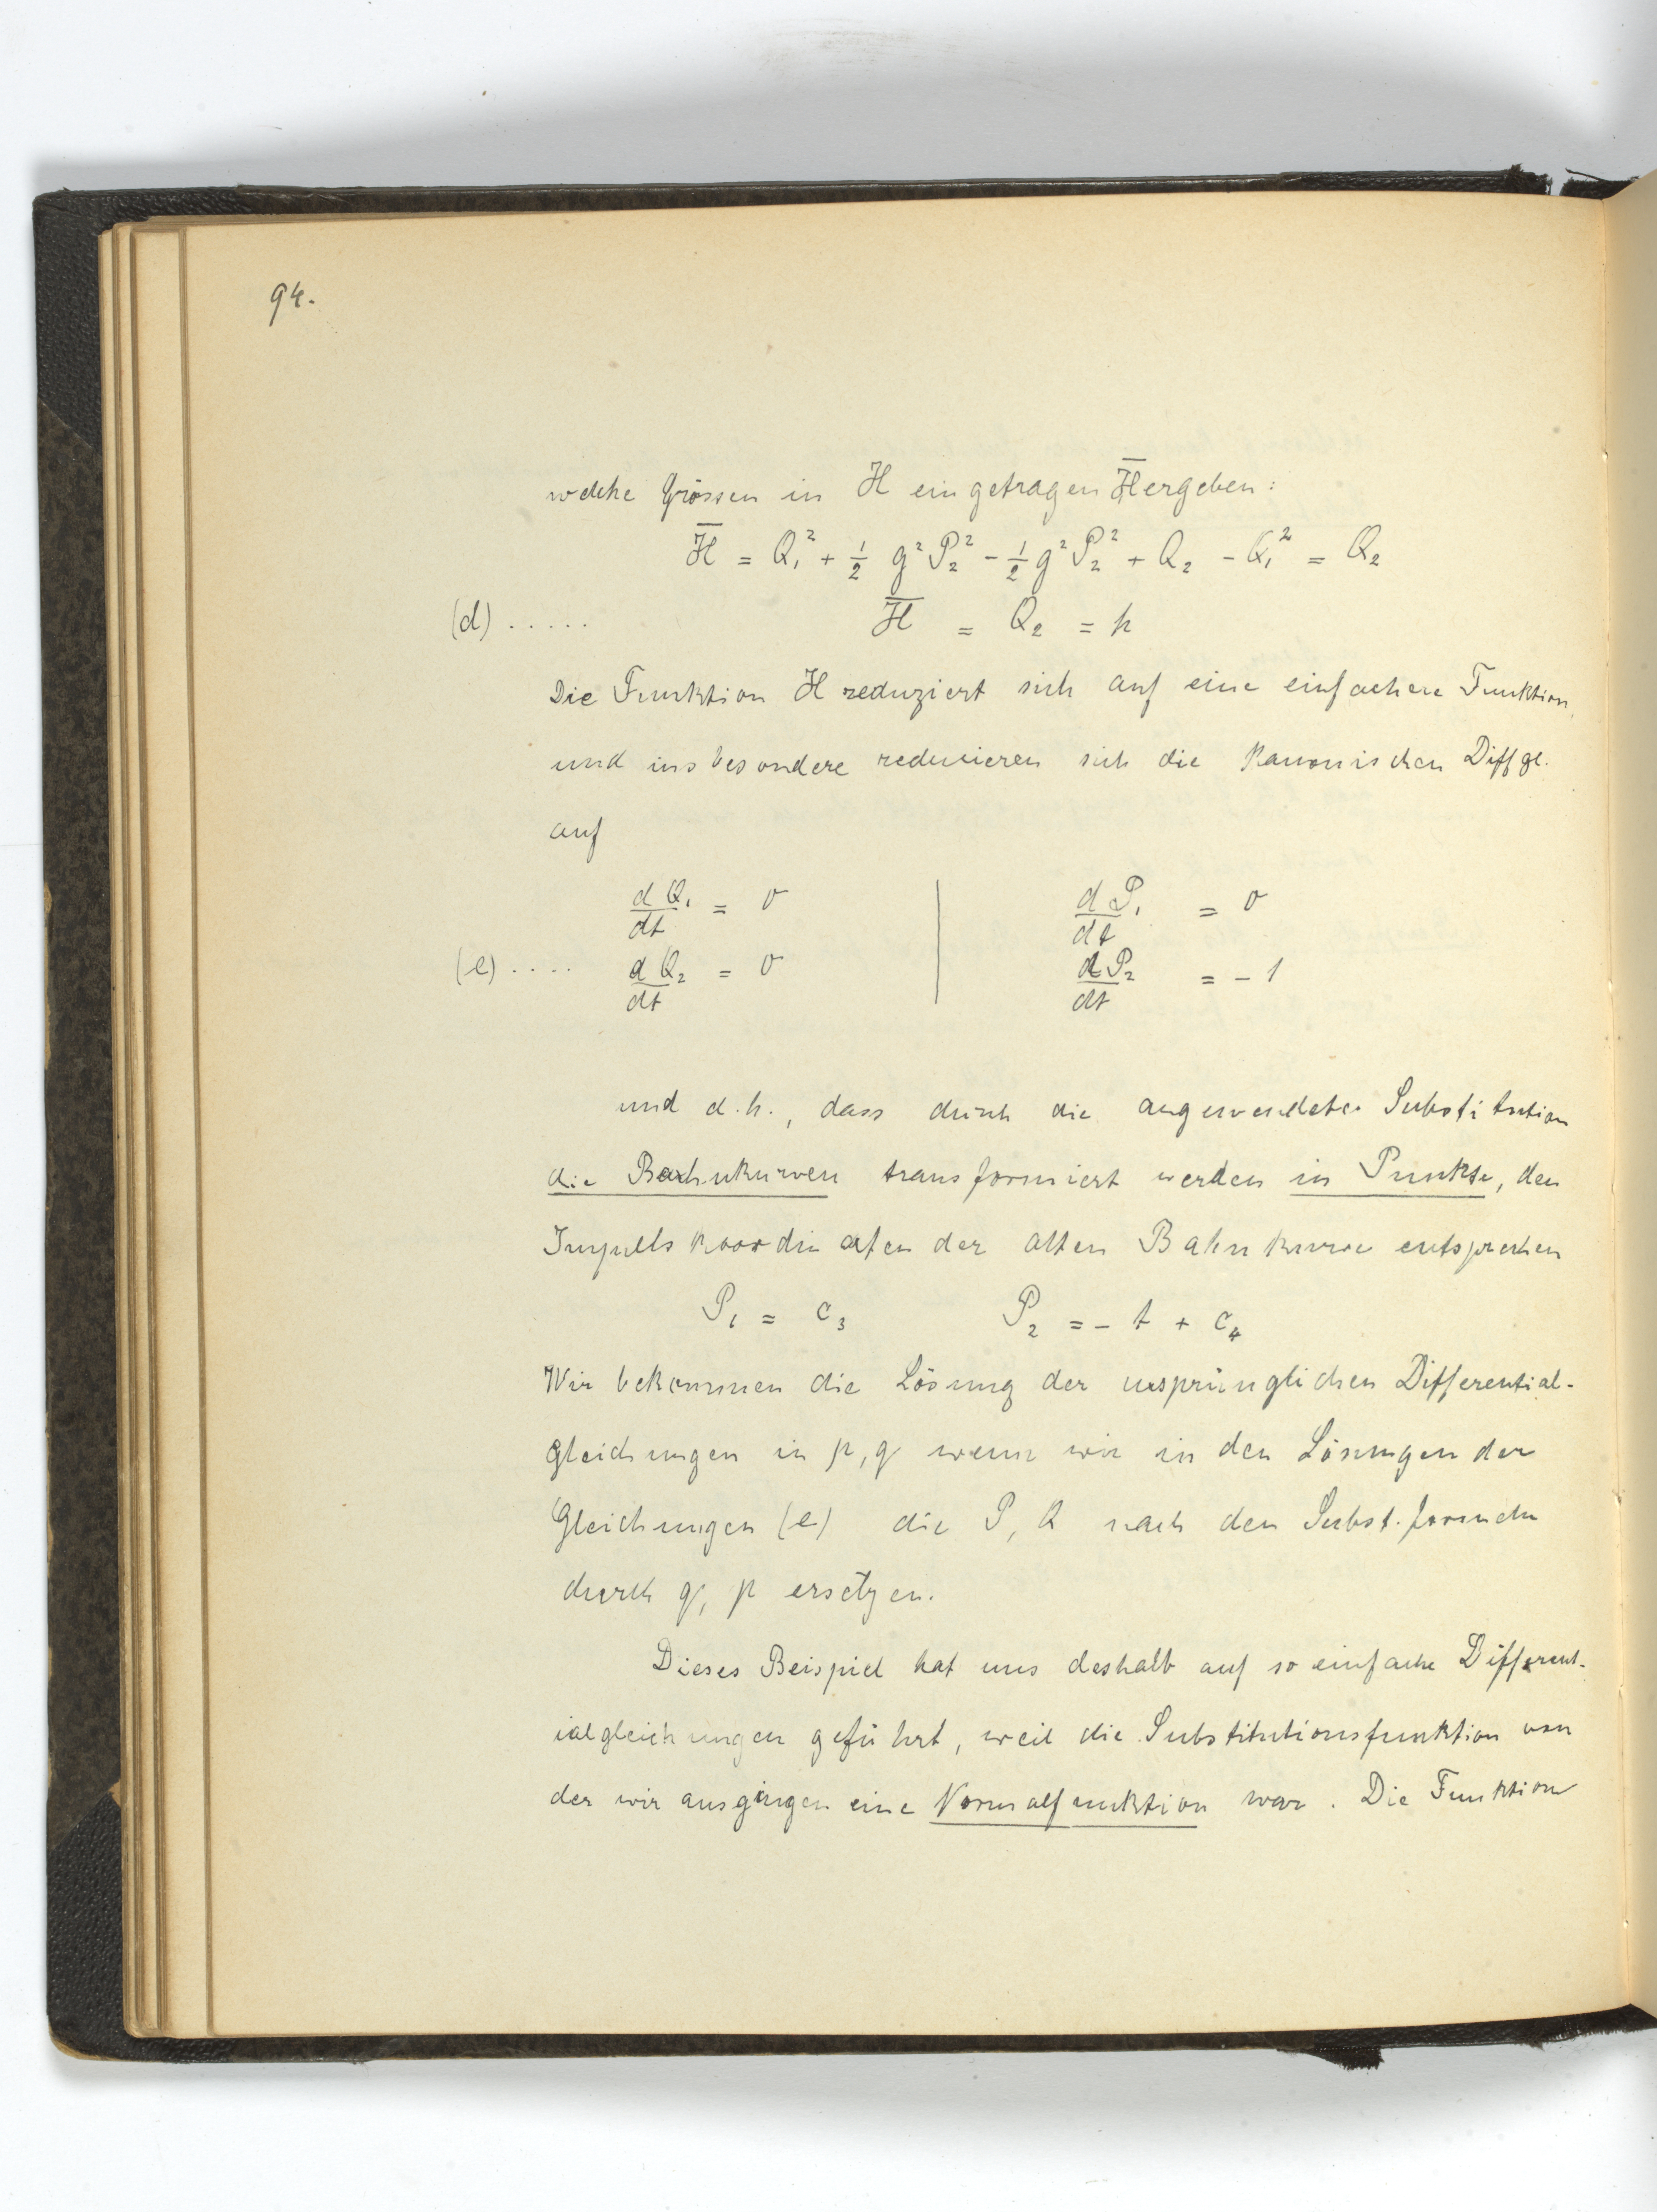 94.
welche Grössen in H eingetragen H̅ ergeben:
H̅ = Q₁² + ½ g² P₂² - ½ g² P₂² + Q₂ - Q₁² = Q₂
(d) ..... H̅ = Q₂ = h
Die Funktion H reduziert sich auf eine einfachere Funktion,
und insbesondere reduzieren sich die kanonischen Diffgl.
auf
dQ₁/dt = 0 | dP₁/dt = 0
(e) .... dQ₂/dt = 0 | dP₂/dt = -1
und d.h., dass durch die angewendete Substitution
die Bahnkurven transformiert werden in Punkte, den
Impulskoordinaten der alten Bahnkurve entsprechen
P₁ = c₃ P₂ = - t + c₄
Wir bekommen die Lösung der ursprünglichen Differential-
gleichungen in p, q wenn wir in den Lösungen der
Gleichungen (e) die P, Q nach den Subst. formeln
durch q, p ersetzen.
Dieses Beispiel hat uns deshalb auf so einfache Different-
ialgleichungen geführt, weil die Substitutionsfunktion von
der wir ausgingen eine Normalfunktion war. Die Funktion